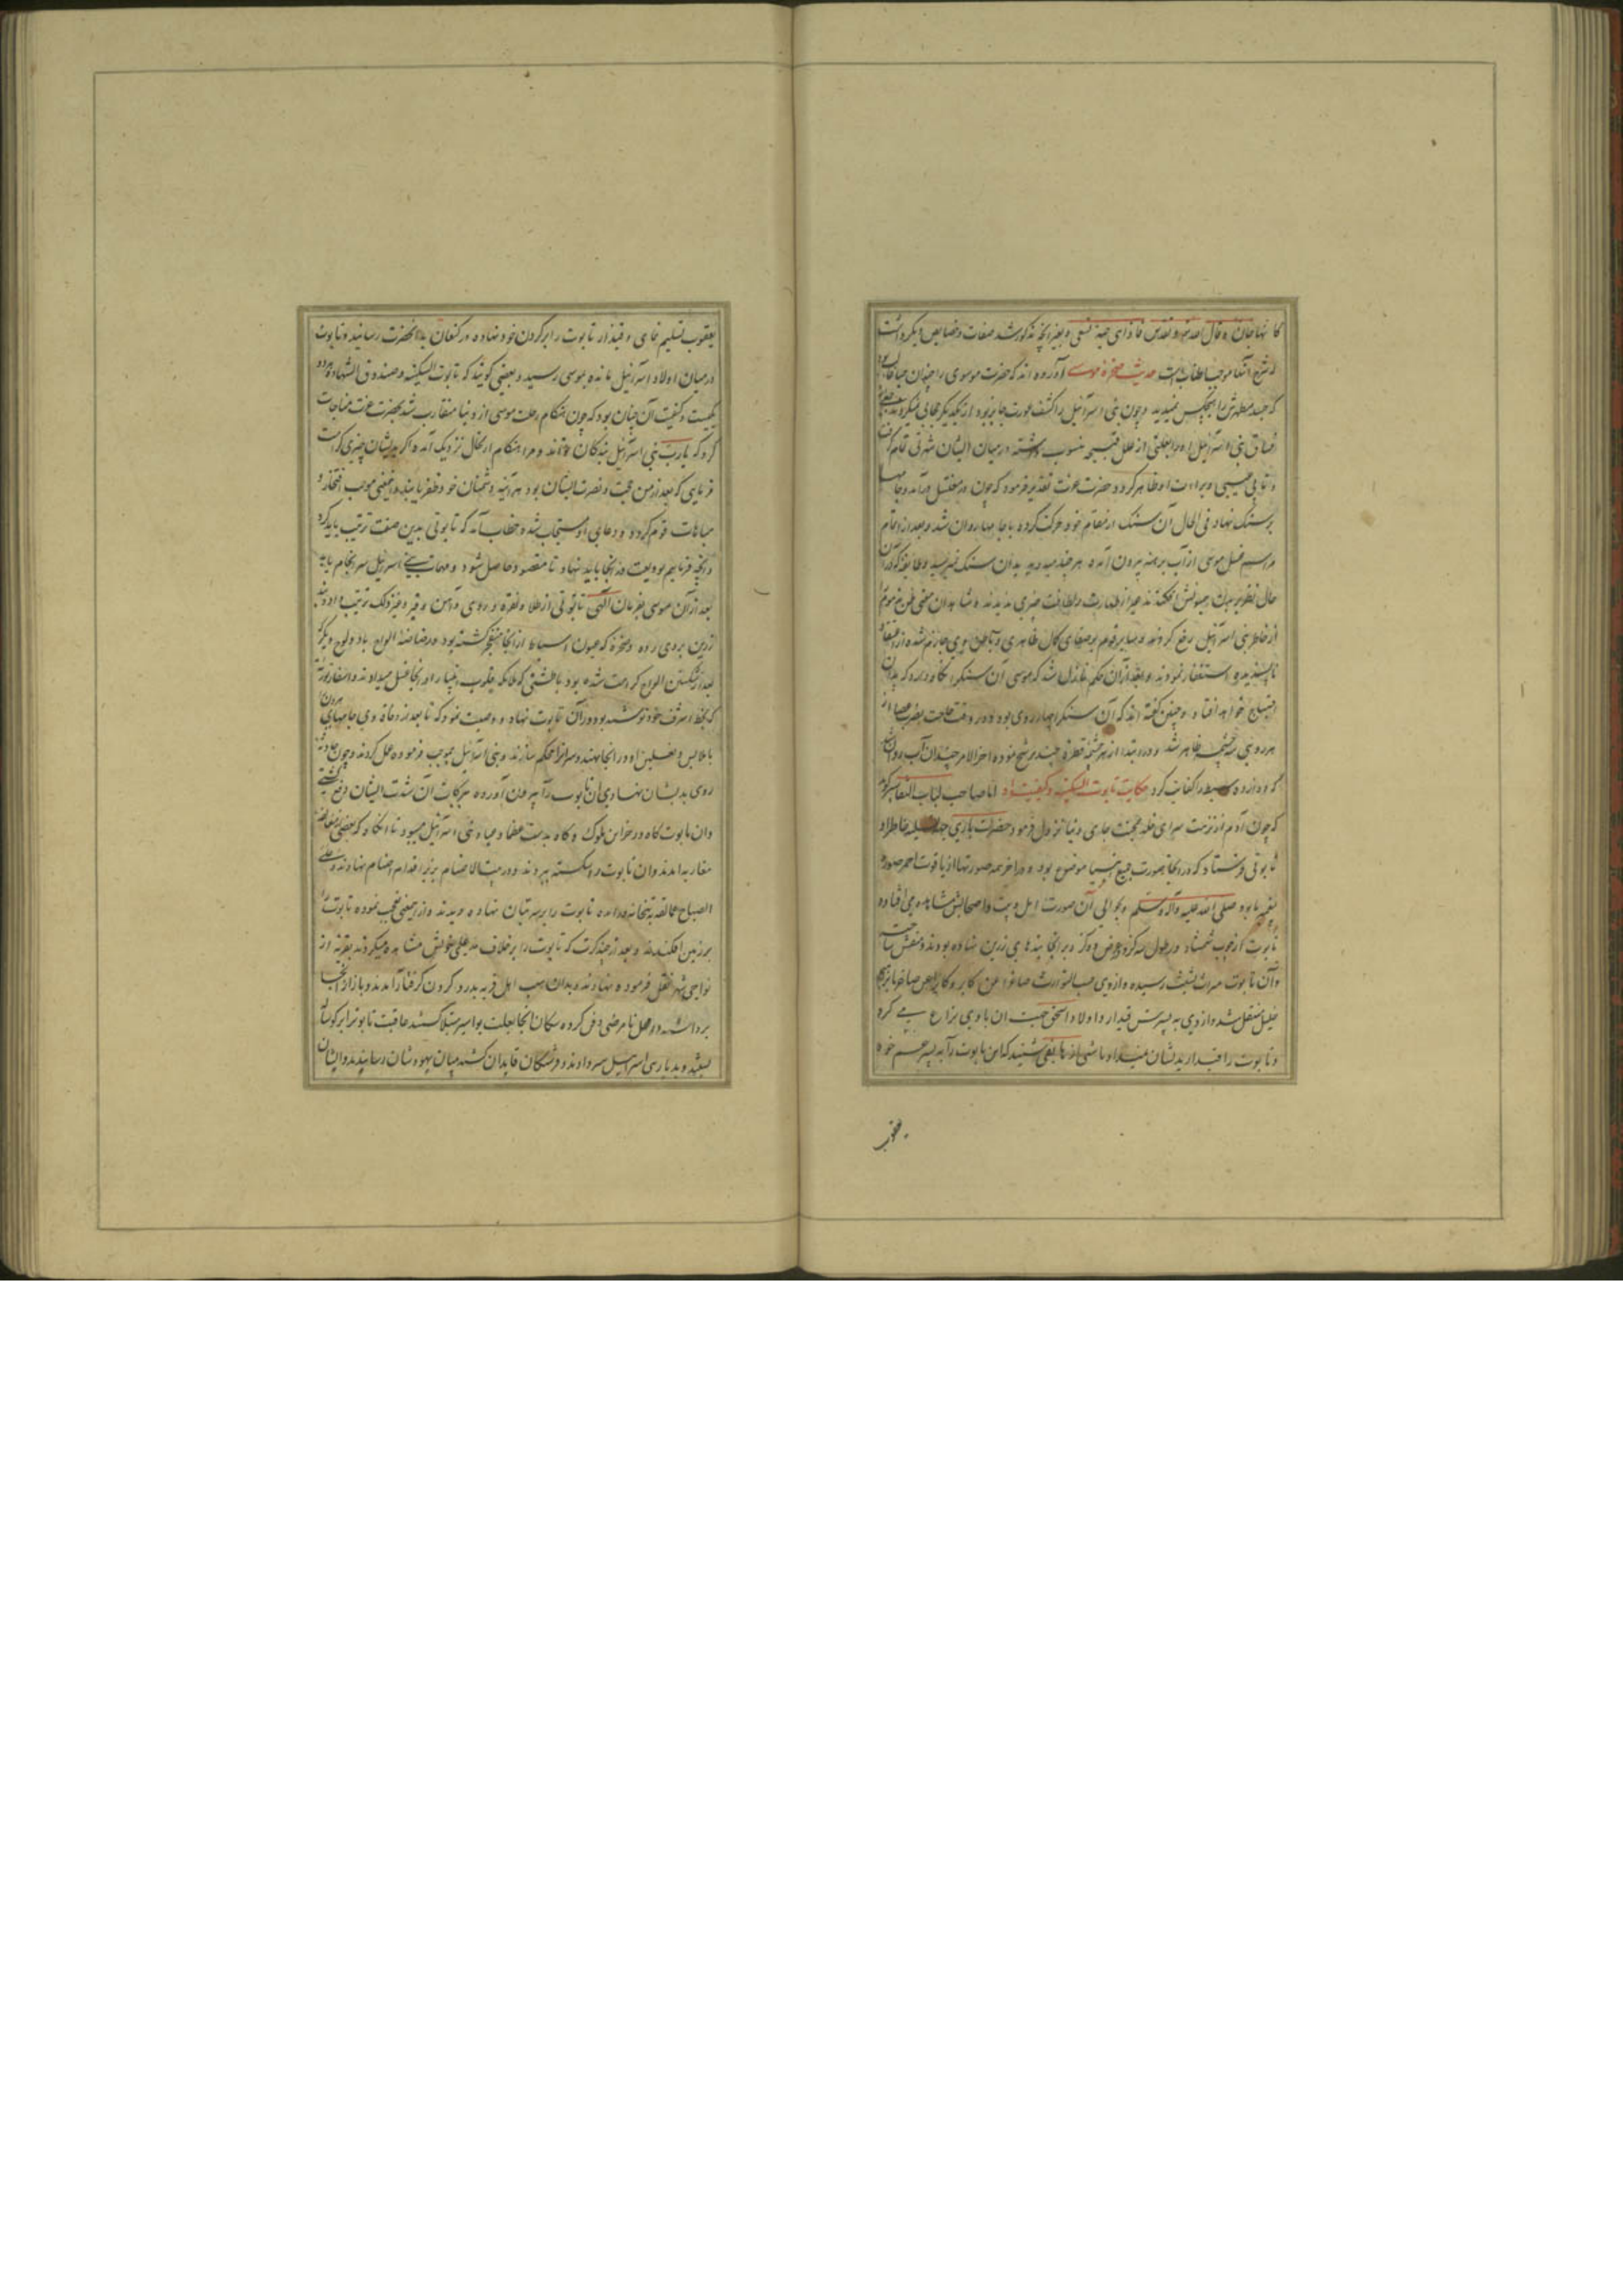 کانها جان و قال الله تعالی و تقدس فاذا هی حیة تسعی و بغیر آنچه مذکور شد صفات و خصایص دیگر داشت
که شرح آنها موجب اطناب است حدیث صخره موسی آورده اند که حضرت موسوی را چندان حیا غالب بود
که جسد مطهرش را هیچکس نمیدید و چون بنی اسرائیل را کشف عورت جایز بود از یکدیگر حجابی نمیکردند
فساق بنی اسرائیل او را بعلتی از علل قبیحه منسوب داشته در میان ایشان شهرتی تمام گرفت
و برائت او ظاهر کردد حضرت عزت تقدیر فرمود که چون در مغتسل درآمد و جامها
بر سنگ نهاد فی الحال آن سنگ از مقام خود حرکت کرده با جامها روان شد و بعد از اتمام
مراسم غسل موسی از آب برهنه بیرون آمده هر چند میدوید بدان سنگ نمیرسید و طایفه که در آن
حال نظر بر عیوبش افکندند غیر از طهارت و لطافت چیزی ندیدند
از خاطر بنی اسرائیل رفع کردند و سایر قوم بر صفای کمال ظاهری و باطنی وی جازم شده از اعتقاد
ناپسندیده استغفار نمودند و بعد از آن حکم نازل شد که موسی آن سنگ را نگاه دارد که بدان
احتیاج خواهد افتاد و چنین گفته اند که آن سنگ را چهار روی بود و در وقت حاجت بضرب عصا از
هر روی سه چشمه ظاهر شد و در ابتدا از هر چشمه قطره چند ترشح نموده آخر الامر چندان آب روان شد
که دوازده سبط را کفایت کرد حکایت تابوت السکینه و کیفیت او اما صاحب لباب التفاسیر گوید
که چون آدم از نزهت سرای خلد بمحنت جای دنیا نزول فرمود حضرت باری جهت تسلیه خاطر او
تابوتی فرستاد که در آنجا صورت جمیع انبیا موضوع بود و در آخر همه صورتها از یاقوت احمر صورت
پیغمبر ما بود صلی الله علیه و آله و سلم و بحوالی آن صورت اهل و بیت و اصحابش مشاهده می افتاده
تابوت از چوب شمشاد در طول سه گز و عرض دو گز و بر آنجا بندهای زرین نهاده بودند
و آن تابوت میراث بشیث رسیده و از وی حسب التوارث صاغرا عن کابر و کابرا عن صاغر بابراهیم
خلیل منتقل شد و از وی به پسرش قیدار و اولاد اسحق جهت آن با وی نزاع می کرد
و تابوت را قیدار بدیشان نمیداد تا شبی از هاتفی شنید که این تابوت را به پسر عم خود
یعقوب
یعقوب تسلیم نمای و قیدار تابوت را بر گردن خود نهاده در کنعان بدانحضرت رسانید و تابوت
در میان اولاد اسرائیل مانده بموسی رسید و بعضی گویند که تابوت السکینه و صندوق الشهاده هر دو
یکیست و کیفیت آن چنان بود که چون هنگام رحلت موسی از دنیا متقارب شد بحضرت عزت مناجات
کرد که یا رب بنی اسرائیل بندگان تواند و مرا هنگام ارتحال نزدیک آمده اگر بدیشان چیزی کرامت
فرمایی که بعد از من حجت و نصرت ایشان بود هر آینه بر دشمنان خود ظفر یابند و این معنی موجب افتخار و
مباهات قوم گردد و دعای او مستجاب شد و خطاب آمد که تابوتی بدین صفت ترتیب باید کرد
و آنچه فرماییم بودیعت در آنجا باید نهاد تا مقصود حاصل شود و مهمات بنی اسرائیل سرانجام یابد
بعد از آن موسی بفرمان الهی تابوتی از طلا و نقره و روی و آهن و غیر ذلک ترتیب داد
زرین بروی زده و صخره که عیون اسباط از آنجا منفجر گشته بود و رضاضه الواح با دو لوح دیگر که
بعد از شکستن الواح کرامت شده بود با طشتی که ملائکه قلوب انبیا را در آنجا غسل میدادند و اسفار توریة
که بخط اشرف خود نوشته بود در آن تابوت نهاد و وصیت نمود که تا بعد از وفاة وی جامهای هرون
با ملابس و نعلین او در آنجا نهند و سر آنرا محکم سازند و بنی اسرائیل بموجب فرموده عمل کردند و چون حادثه
روی بدیشان نهادی آن تابوت را بیرون آورده ببرکات آن شدت ایشان دفع گشتی
و آن تابوت گاه در خزاین ملوک و گاه بدست عظما و میان بنی اسرائیل میبود تا آنگاه که
آمدند و آن تابوت را شکسته ببردند و در بیت الاصنام بزیر اقدام اصنام نهادند و علی
الصباح عمالقه به بتخانه درآمده تابوت را بر سر بتان نهاده دیدند و از این معنی تعجب نموده تابوت را
بر زمین افکندند و بعد از چند کرت که تابوت را بر خلاف مدعای خویش مشاهده میکردند بقریه از
نواحی شهر نقل فرموده نهادند و بدان سبب اهل قریه بدرد گردن گرفتار آمدند و باز از آنجا
برداشته در محل نامرضی دفن کرده سکان آنجا بعلت بواسیر مبتلا گشتند عاقبت تابوت را بر گوساله
بستند و بدیار بنی اسرائیل سر دادند و فرشتگان قاید آن گشته میان یهودشان رسانیدند و ایشان